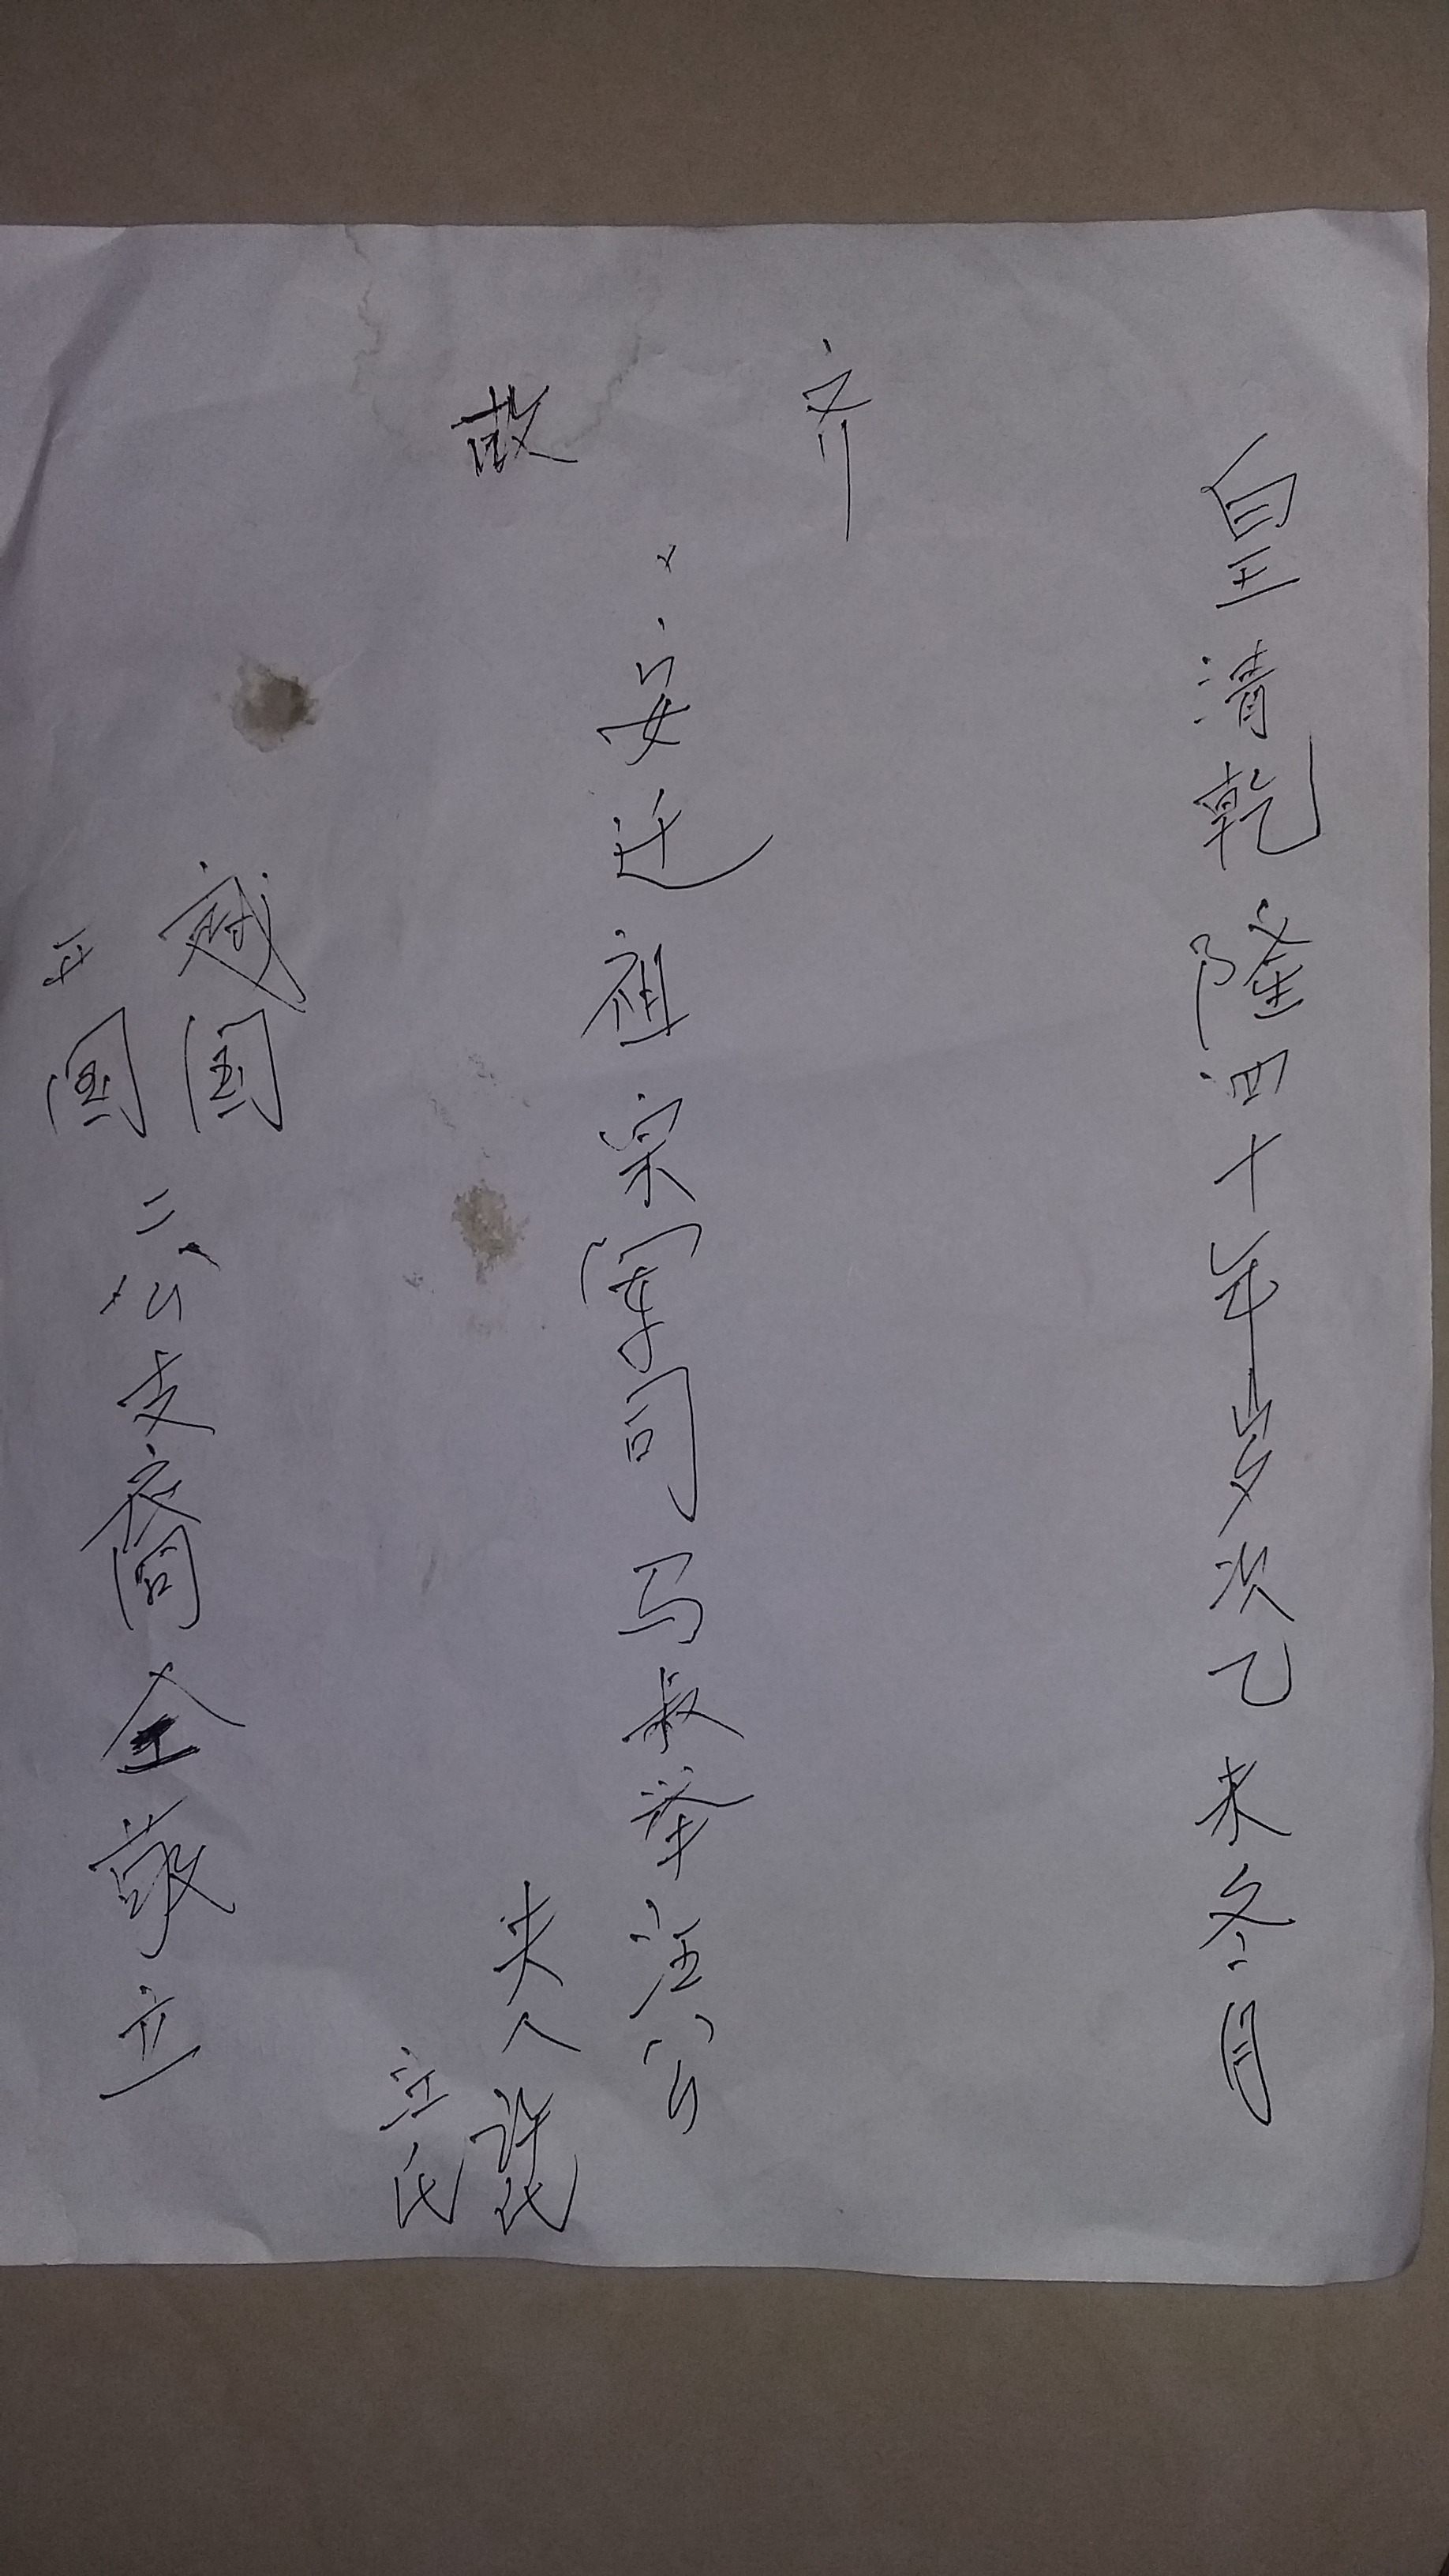 皇清乾隆四十年岁次乙未冬月
齐
安迁祖宗军司马叔举汪公
故
夫人许氏
江氏
越国
国
二公支裔仝敬立